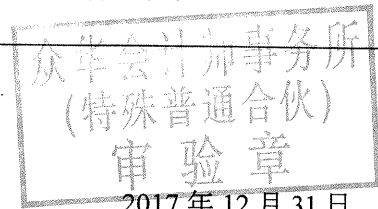 众华会计师事务所
(特殊普通合伙)
审验章
2017 年 12 月 31 日